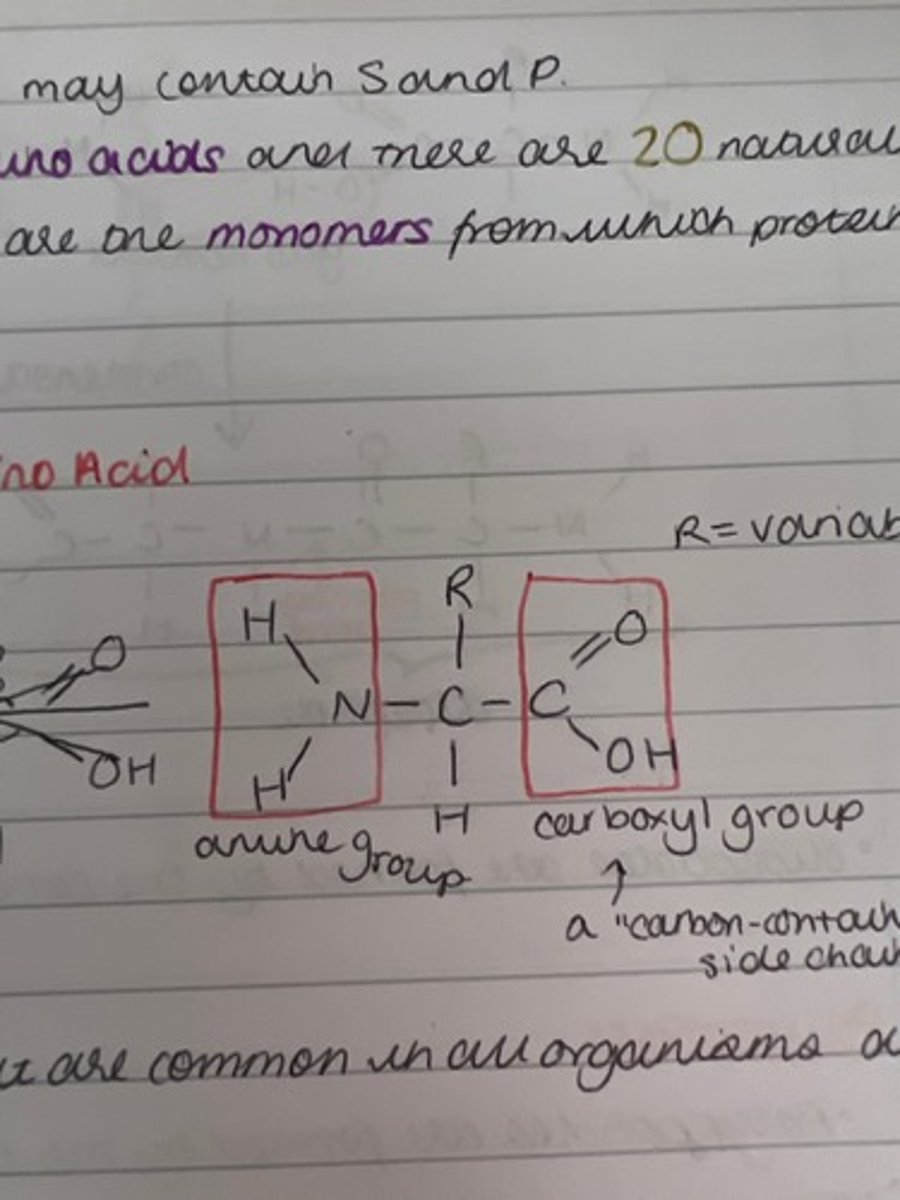 may contain S and P.
ino acids and there are 20 natural
are the monomers from which protein
no Acid
R = variab
H R O
O N - C - C
OH H H OH
amine group carboxyl group
a "carbon-contain
side chai
are common in all organisms a